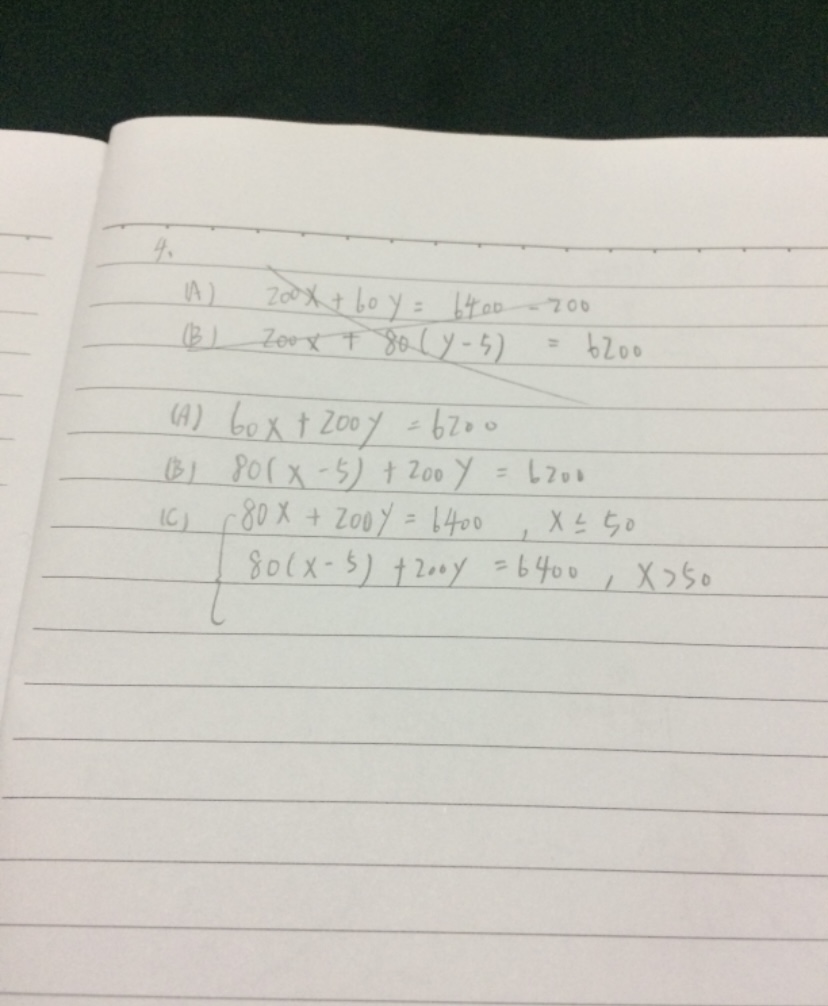 4.
(A) 200X + 60y = 6400 - 200
(B) 200x + 80(y-5) = 6200
(A) 60x + 200y = 6200
(B) 80(x-5) + 200y = 6200
(C) 80X + 200y = 6400 , X ≤ 50
80(x-5) + 200y = 6400 , X > 50